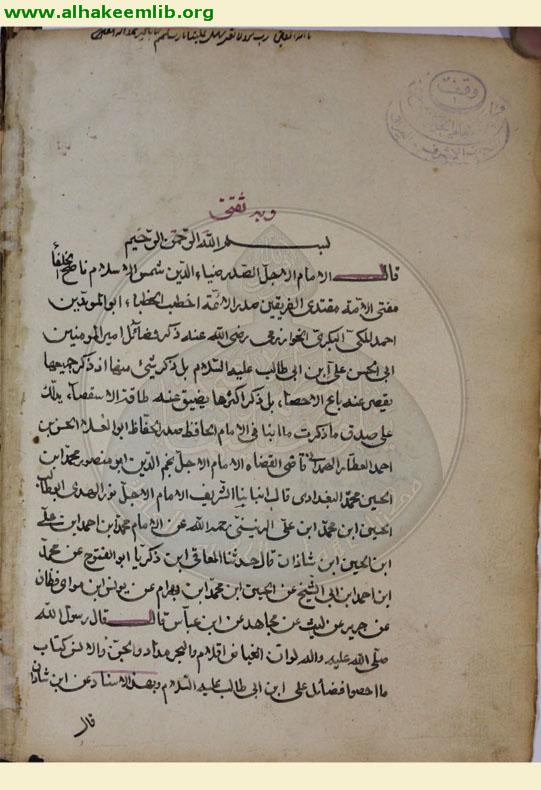 www.alhakeemlib.org
وقف
وبه ثقتي
بسم الله الرحمن الرحيم
قال الامام الاجل الصدر ضياء الدين شمس الاسلام ناصح الخلفا
مفتى الامة مقتدى الفريقين صدر الائمة اخطب الخطبا ابو المويد بن
احمد المكى البكرى الخوارزمى رضى الله عنه ذكر فضائل امير المومنين
ابى الحسن على ابن ابى طالب عليه السلام بل ذكر شئ منها اذ ذكر جميعها
يقصر عنه باع الاحصاء بل ذكر اكثرها يضيق عنه طاقة الاستقصاء يدلك
على صدق ما ذكرت ما انبانى الامام الحافظ صدر الحفاظ ابو العلاء الحسن بن
احمد العطار الهمدانى قاضى القضاه الامام الاجل نجم الدين ابو منصور محمد ابن
الحسين محمد البغدادى قال انبانا الشريف الامام الاجل نور الهدى ابو طالب
الحسين ابن محمد ابن على الزينبى رحمه الله عن الامام محمد ابن احمد ابن على
ابن الحسين ابن شاذان قال حدثنا المعافى ابن ذكريا ابو الفتوح عن محمد
ابن احمد ابن ابى الشيخ عن الحسين ابن محمد ابن بهرام عن يونس ابن موسى قطان
عن جرير عن ليث عن مجاهد عن ابن عباس قال قال رسول الله
صلى الله عليه واله لو ان الغياض اقلام والبحر مداد والجن والانس كتاب
ما احصوا فضائل على ابن ابى طالب عليه السلام وبهذا الاسناد عن ابن شاذان
قال